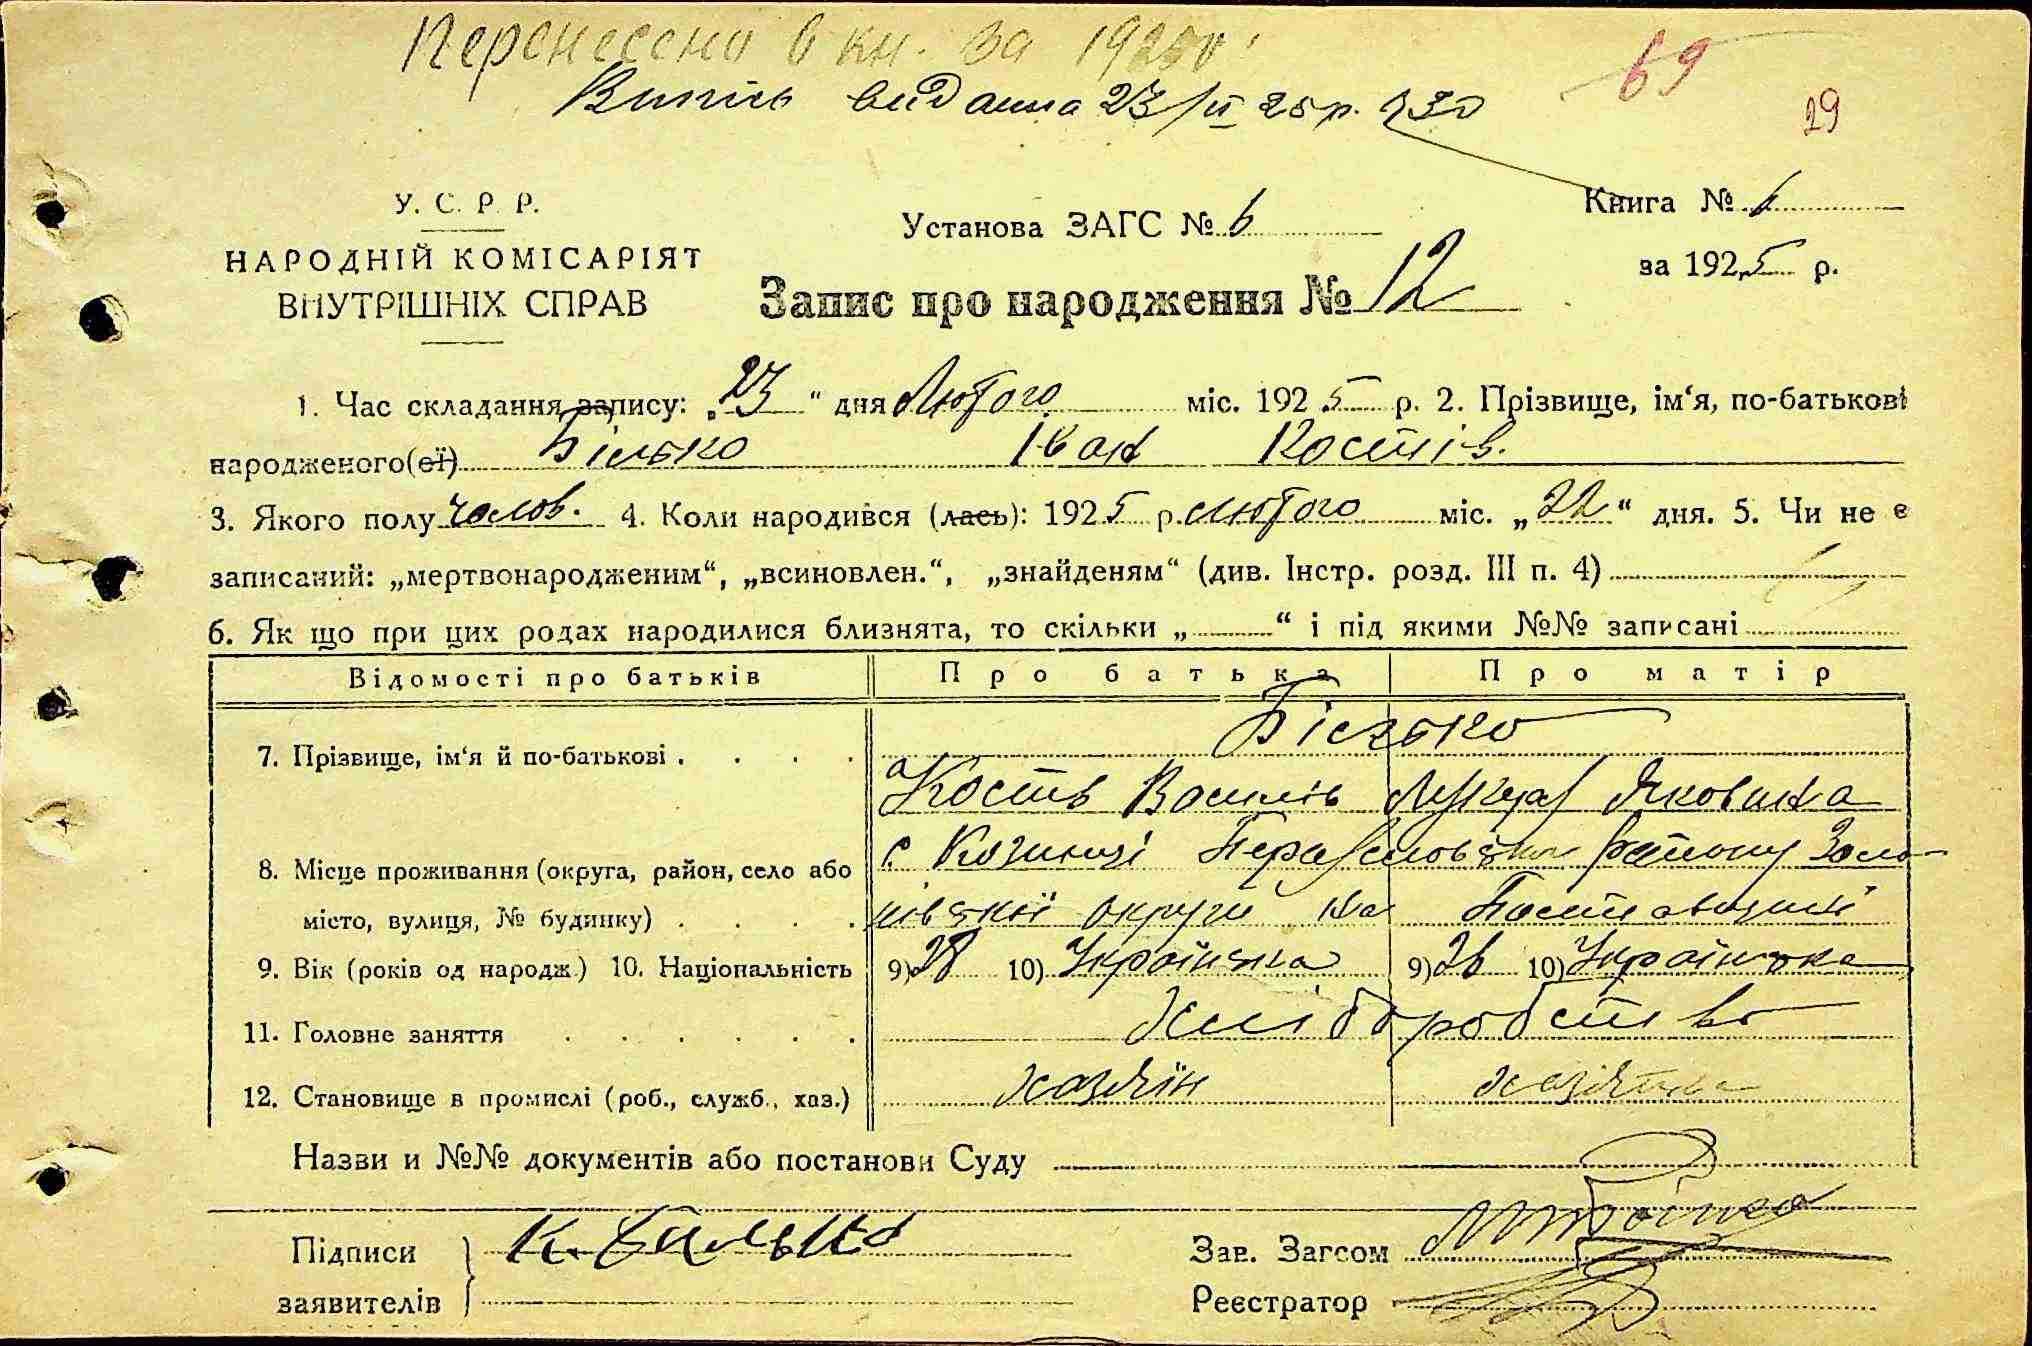 Перенесено в кн. за 1925 р.
Випись видана 23/II 25 р. №30
69
29
У. С. Р. Р.
НАРОДНІЙ КОМІСАРІЯТ
ВНУТРІШНІХ СПРАВ
Установа ЗАГС № 6
Книга № 6
за 1925 р.
Запис про народження № 12
1. Час складання запису: „23“ дня Лютого міс. 1925 р. 2. Прізвище, ім‘я, по-батькові
народженого(еї) Білько Іван Костів.
3. Якого полу чолов. 4. Коли народився (лась): 1925 р. лютого міс. „22“ дня. 5. Чи не є
записаний: „мертвонародженим“, „всиновлен.“, „знайденям“ (див. Інстр. розд. III п. 4)
6. Як що при цих родах народилися близнята, то скільки „ “ і під якими №№ записані
Відомості про батьків Про батька Про матір
7. Прізвище, ім‘я й по-батькові Білько
Кость Василів Лукера Яковина
8. Місце проживання (округа, район, село або с. Козинці Переяславського району Золо-
місто, вулиця, № будинку) нівської округи
9. Вік (років од народж.) 10. Національність 9) 28 10) Українська 9) 26 10) Українська
11. Головне заняття Хліборобство
12. Становище в промислі (роб., служб., хаз.) хазяїн хазяйка
Назви и №№ документів або постанови Суду
Підписи К. Билько Зав. Загсом
заявителів Реєстратор